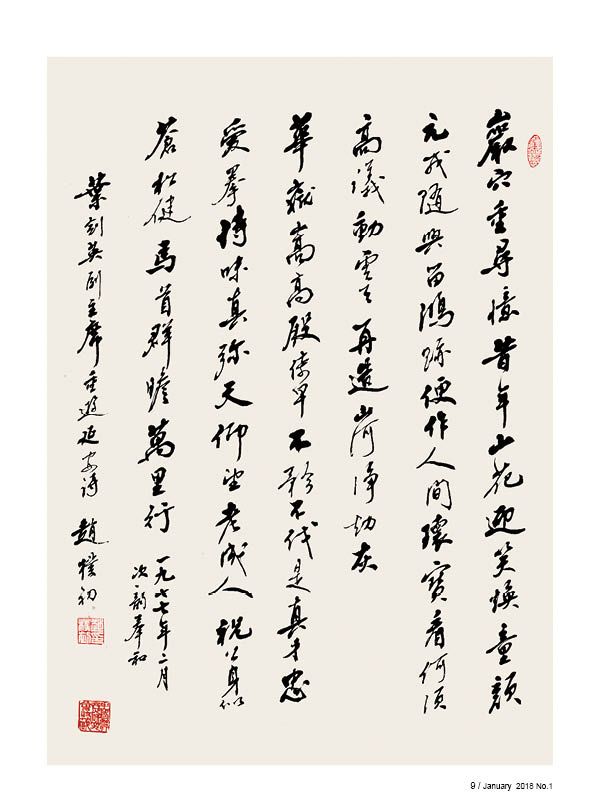 巖穴重尋憶昔年山花迎笑煥童顏
元戎隨興留鴻跡便作人間寶看何須
高議動雲天再造山河淨劫灰
華嶽嵩高殿早不矜不伐是真才忠
愛拳〻詩味真弥天仰望老成人祝公身似
蒼松健馬首群瞻萬里行 一九七七年二月
次韻奉和
葉劍英副主席重遊延安詩 趙樸初
9 / January 2018 No.1